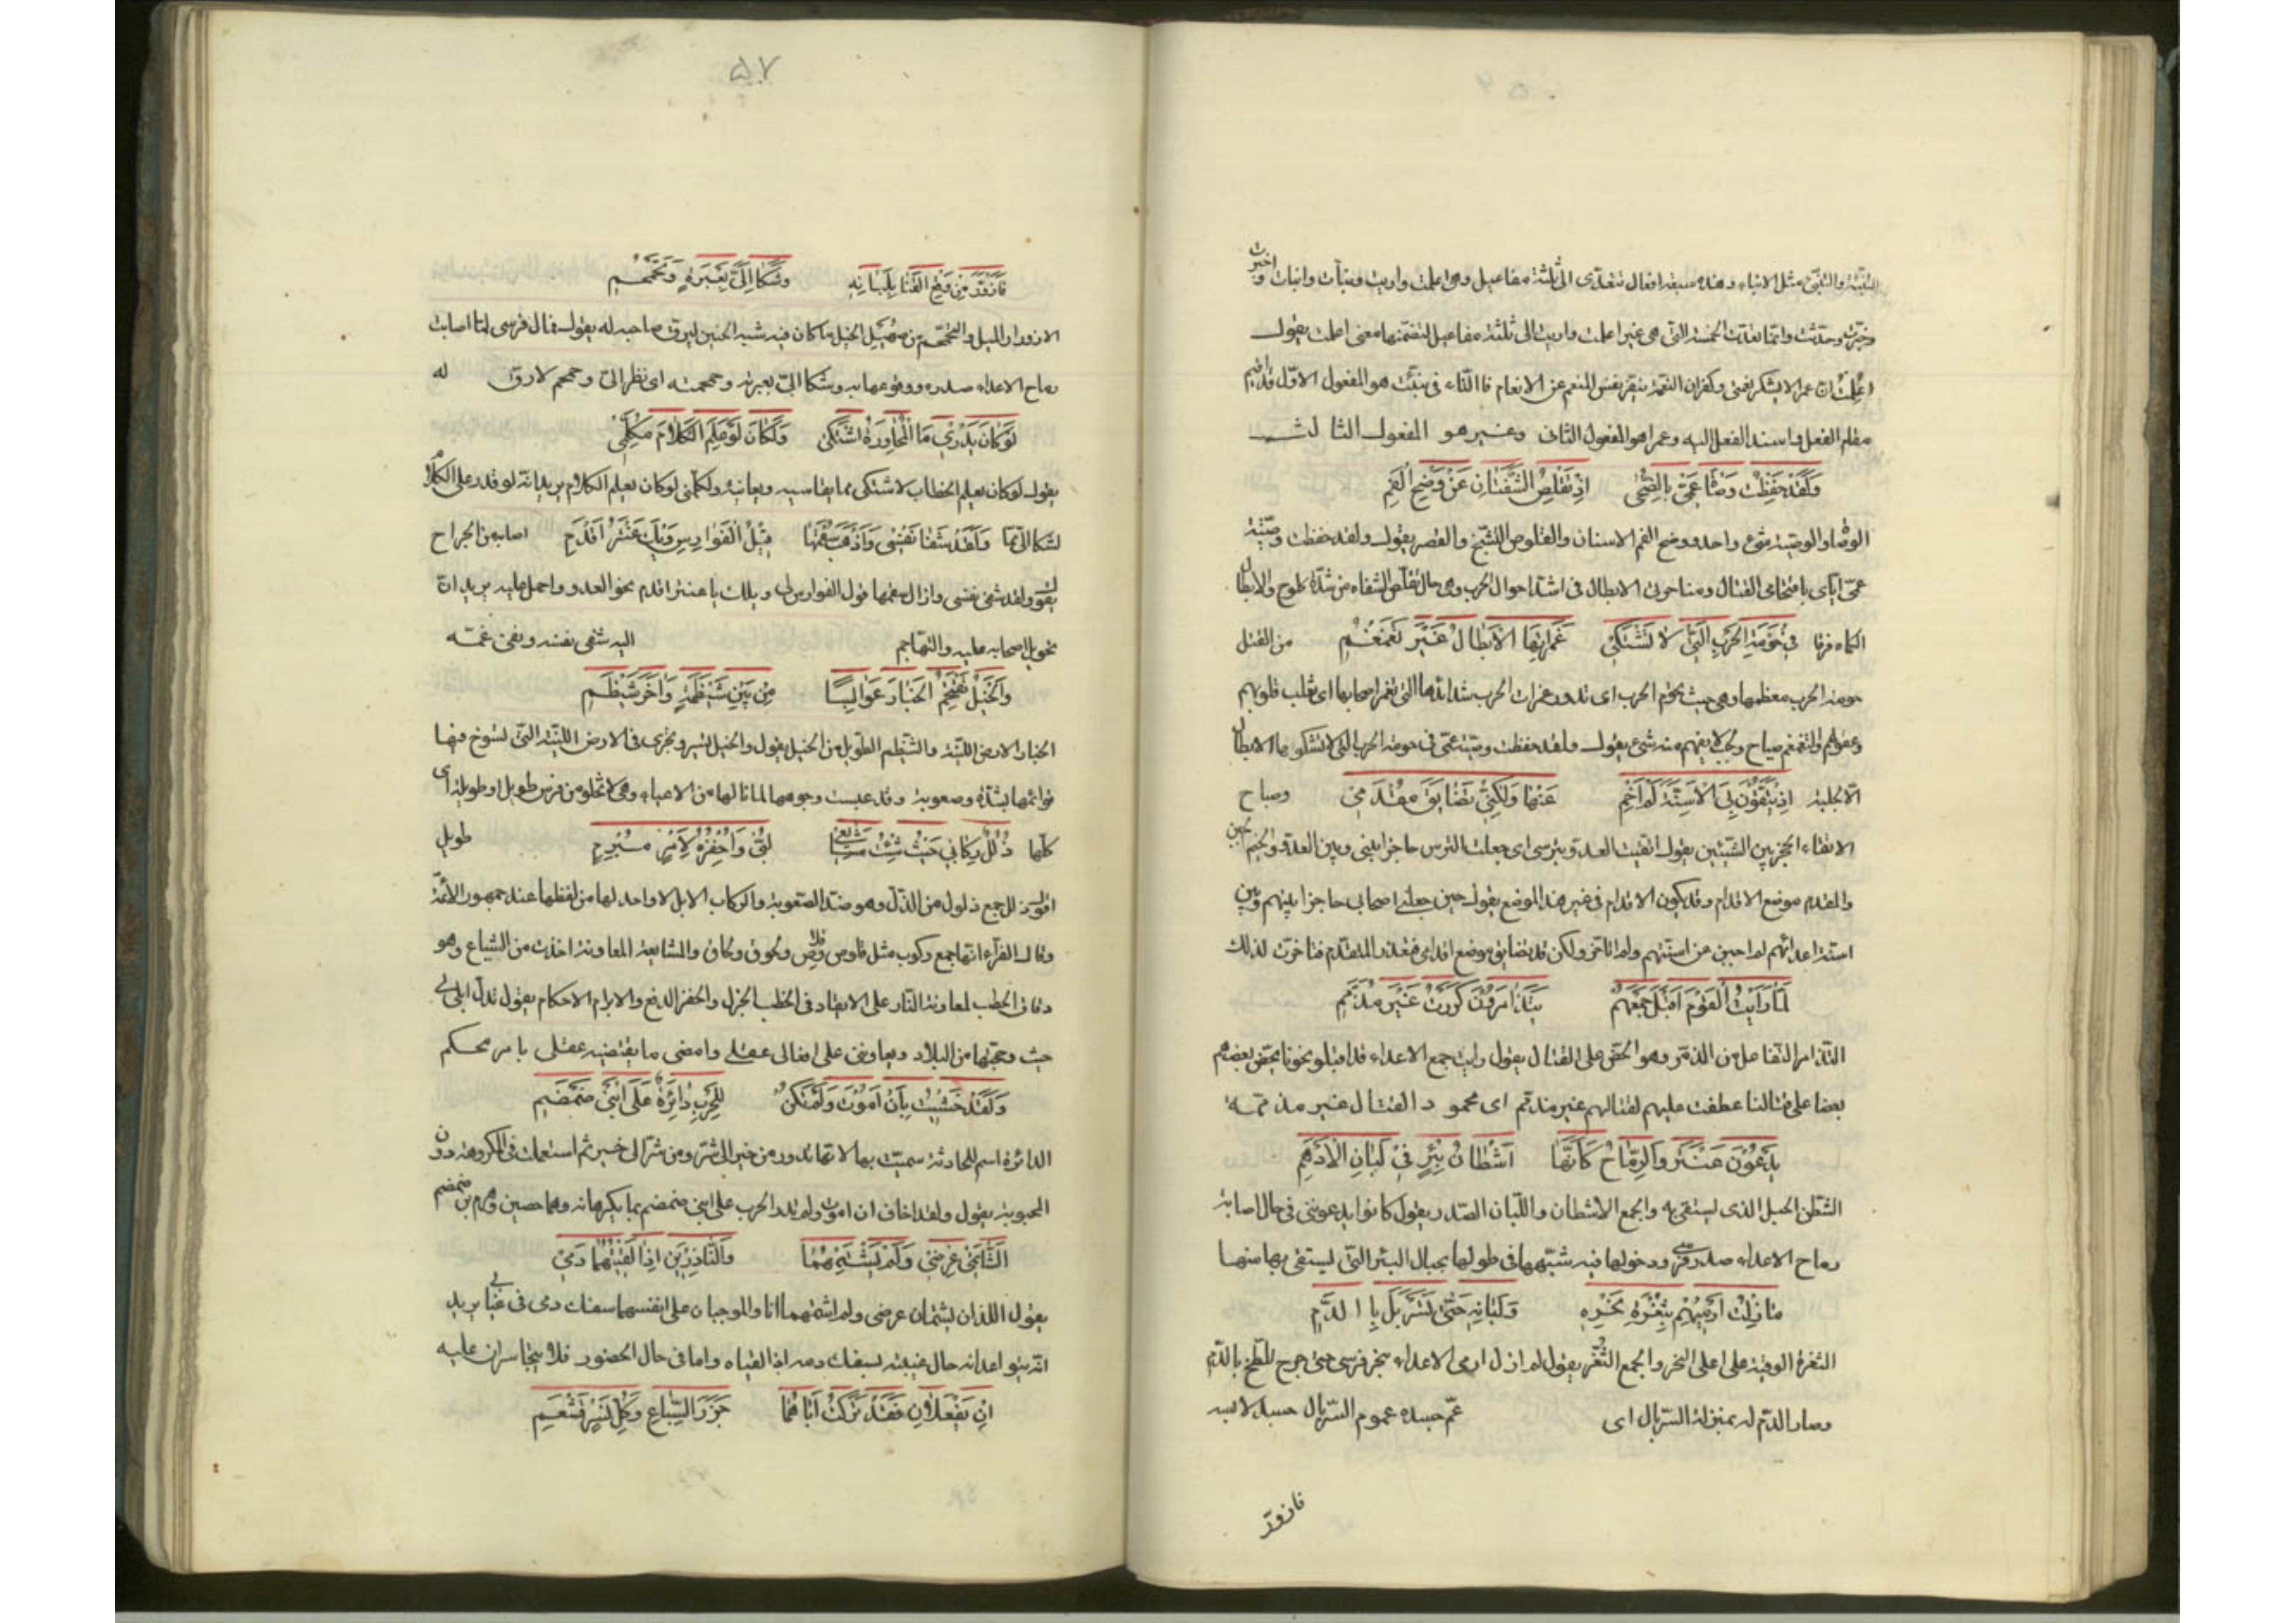 التنبئة والتنبئ مثل الانباء وهذه سبعة افعال تتعدى الى ثلثة مفاعيل وهى اعلمت واريت ونبأت وانبأت واخبرت
وخبرت وحدثت وانما تعدت الخمسة التى هى غير اعلمت واريت الى ثلثة مفاعيل لتضمنها معنى اعلمت يقول
اعلمت ان عمرا لا يشكر نعمتى وكفران النعمة ينفر نفس المنعم عن الانعام فاالتاء فى نبئت هو المفعول الاول قد اقيم
مقام الفعل واسند الفعل اليه وعمرا هو المفعول الثانى وغير هو المفعول الثالث
وَلَقَدْ حَفِظْتُ وَصَاةَ عَمِّى بِالضُّحَى اِذْ تَقْلِصُ الشَّفَتَانِ عَنْ وَضَحِ الْفَمِ
الوصاة والوصية شىء واحد ووضح الفم الاسنان والقلوص التشنج والقصر يقول ولقد حفظت وصية
عمى اياى باقتحامى القتال ومناجزتى الابطال فى اشد احوال الحرب وهى حال تقلص الشفاه من شدة كلوح والابطال
الكماة فرقا فِى حَوْمَةِ الْحَرْبِ الَّتِى لَا تَشْتَكِى غَمَرَاتِهَا الْاَبْطَالُ غَيْرَ تَغَمْغُمِ من القتل
حومة الحرب معظمها وهى حيث تحوم الحرب اى تدور وغمرات الحرب شدائدها التى تغمر اصحابها اى تغلب قلوبهم
وعقولهم والتغمغم صياح ولجب لا يفهم منه شىء يقول ولقد حفظت وصية عمى فى حومة الحرب التى لا تشكوها الابطال
الا بجلبة اِذْ يَتَّقُونَ بِىَ الْاَسِنَّةَ لَمْ اَخِمْ عَنْهَا وَلَكِنِّى تَضَايَقَ مُقْدَمِى وصياح
الاتقاء الحجز بين الشيئين يقول اتقيت العدو بترسى اى جعلت الترس حاجزا بينى وبين العدو والخيم الجبن
والمقدم موضع الاقدام وقد يكون الاقدام فى غير هذا الموضع يقول حين جعلنى اصحابى حاجزا بينهم وبين
اسنة اعدائهم لم اجبن عن اسنتهم ولم اتاخر ولكن قد تضايق موضع اقدامى فتعذر التقدم فتاخرت لذلك
لَمَّا رَاَيْتُ الْقَوْمَ اَقْبَلَ جَمْعُهُمْ يَتَذَامَرُونَ كَرَرْتُ غَيْرَ مُذَمَّمِ
التذامر التفاعل من الذمر وهو الحض على القتال يقول رايت جمع الاعداء قد اقبلو نحونا يحض بعضهم
بعضا على قتالنا عطفت عليهم لقتالهم غير مذمم اى محمود القتال غير مذممه
يَدْعُونَ عَنْتَرَ وَالرِّمَاحُ كَاَنَّهَا اَشْطَانُ بِئْرٍ فِى لَبَانِ الْاَدْهَمِ
الشطن الحبل الذى يستقى به والجمع الاشطان واللبان الصدر يقول كانوا يدعوننى فى حال اصابة
رماح الاعداء صدر فرسى ودخولها فيه شبهها فى طولها بحبال البئر التى يستقى بها منها
مَا زِلْتُ اَرْمِيهِمْ بِثُغْرَةِ نَحْرِهِ وَلَبَانِهِ حَتَّى تَسَرْبَلَ بِا الدَّمِ
الثغرة الوقبة على اعلى النحر والجمع الثغر يقول لم ازل ارمى الاعداء بنحر فرسى حتى جرح وتلطخ بالدم
وصار الدم له بمنزلة السربال اى عم جسده عموم السربال جسد لابسه
فازور
۵۷
فَازْوَرَّ مِنْ وَقْعِ الْقَنَا بِلَبَانِهِ وَشَكَا اِلَىَّ بِعَبْرَةٍ وَتَحَمْحُمِ
الازورار الميل والتحمحم من صهيل الخيل ما كان فيه شبه الحنين ليرق صاحبه له يقول فمال فرسى لما اصابت
رماح الاعداء صدره ووقوعها به وشكا الى بعبرته وحمحمته اى نظر الى وحمحم لارق له
لَوْ كَانَ يَدْرِى مَا الْمُحَاوَرَةُ اشْتَكَى وَلَكَانَ لَوْ عَلِمَ الْكَلَامَ مُكَلِّمِى
يقول لو كان يعلم الخطاب لاشتكى مما يقاسيه ويعانيه ولكلمنى لو كان يعلم الكلام يريد انه لو قدر على الكلام
لشكا الى مما وَلَقَدْ شَفَا نَفْسِى وَاَذْهَبَ سُقْمَهَا قِيْلُ الْفَوَارِسِ وَيْكَ عَنْتَرُ اَقْدِمِ اصابه من الجراح
يقول ولقد شفى نفسى وازال سقمها قول الفوارس لى ويلك يا عنتر اقدم نحو العدو واحمل عليه يريد ان
تعويل اصحابه عليه والتجاءهم اليه شفى نفسه ونفى غمه
وَالْخَيْلُ تَقْتَحِمُ الْخَبَارَ عَوَابِسًا مِنْ بَيْنِ شَيْظَمَةٍ وَاٰخَرَ شَيْظَمِ
الخبار الارض اللينة والشيظم الطويل من الخيل يقول والخيل تسير وتجرى فى الارض اللينة التى تسوخ فيها
قوائمها بشدة وصعوبة وقد عبست وجوهها لما نالها من الاعياء وهى لا تخلو من فرس طويل او طويلة اى
كلها ذُلُلٌ رِكَابِى حَيْثُ شِئْتُ مُشَايِعِى لُبِّى وَاَحْفِزُهُ بِاَمْرٍ مُبْرَمِ طويل
الذلل جمع ذلول من الذل وهو ضد الصعوبة والركاب الابل لا واحد لها من لفظها عند جمهور الائمة
وقال الفراء انها جمع ركوب مثل قلوص وقلاص ولقوح ولقاح والمشايعة المعاونة اخذت من الشياع وهو
دقاق الحطب لمعاونة النار على الايقاد فى الحطب الجزل والحفز الدفع والابرام الاحكام يقول تذل ابلى لى
حيث وجهتها من البلاد ويعاوننى على افعالى عقلى وامضى ما يقتضيه عقلى بامر محكم
وَلَقَدْ خَشِيْتُ بِاَنْ اَمُوتَ وَلَمْ تَكُنْ لِلْحَرْبِ دَائِرَةٌ عَلَى ابْنَىْ ضَمْضَمِ
الدائرة اسم للحادثة سميت بها لانها تدور من خير الى شر ومن شر الى خير ثم استعملت فى المكروهة دون
المحبوبة يقول ولقد اخاف ان اموت ولم تدر الحرب على ابنى ضمضم بما يكرهانه وهما حصين وهرم بن ضمضم
الشَّاتِمَىْ عِرْضِى وَلَمْ اَشْتِمْهُمَا وَالنَّاذِرَيْنِ اِذَا لَقِيْتُهُمَا دَمِى
يقول اللذان يشتمان عرضى ولم اشتمهما انا والموجبان على انفسهما سفك دمى فى غيابى يريد
انهما يتواعدانه حال غيبته بسفك دمه اذا لقياه واما فى حال الحضور فلا يتجاسران عليه
اِنْ يَفْعَلَا فَلَقَدْ تَرَكْتُ اَبَاهُمَا جَزَرَ السِّبَاعِ وَكُلِّ نَسْرٍ قَشْعَمِ